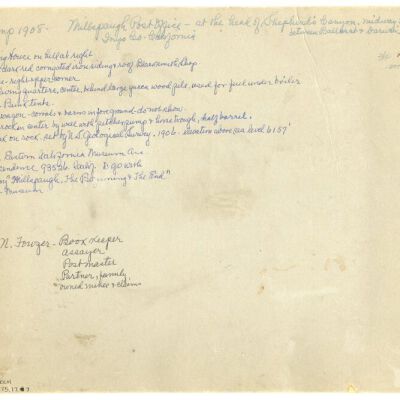 mp 1908- Millspaugh Post Office - at the head of Shepherd's Canyon, midway
Inyo Co. California between Ballarat & Darwin
ing House on hill at right
dark red corrugated iron siding & roof Blacksmith Shop
right upper corner
ving quarters, center, behind large green wood pile, used for fuel under boiler
Paiute tents
wagon - corrals & barns in foreground do not show.
rock in center by well with pitcher pump & horse trough, half barrel.
on rock, set by U.S. Geological Survey, 1906. elevation above sea level 6157'
Eastern California Museum
endence 93526 Calif.
"Millspaugh, The Beginning & The End"
Museum
N. Fowzer - Book Keeper
assayer
Post master
Partner, family
owned mines & claims